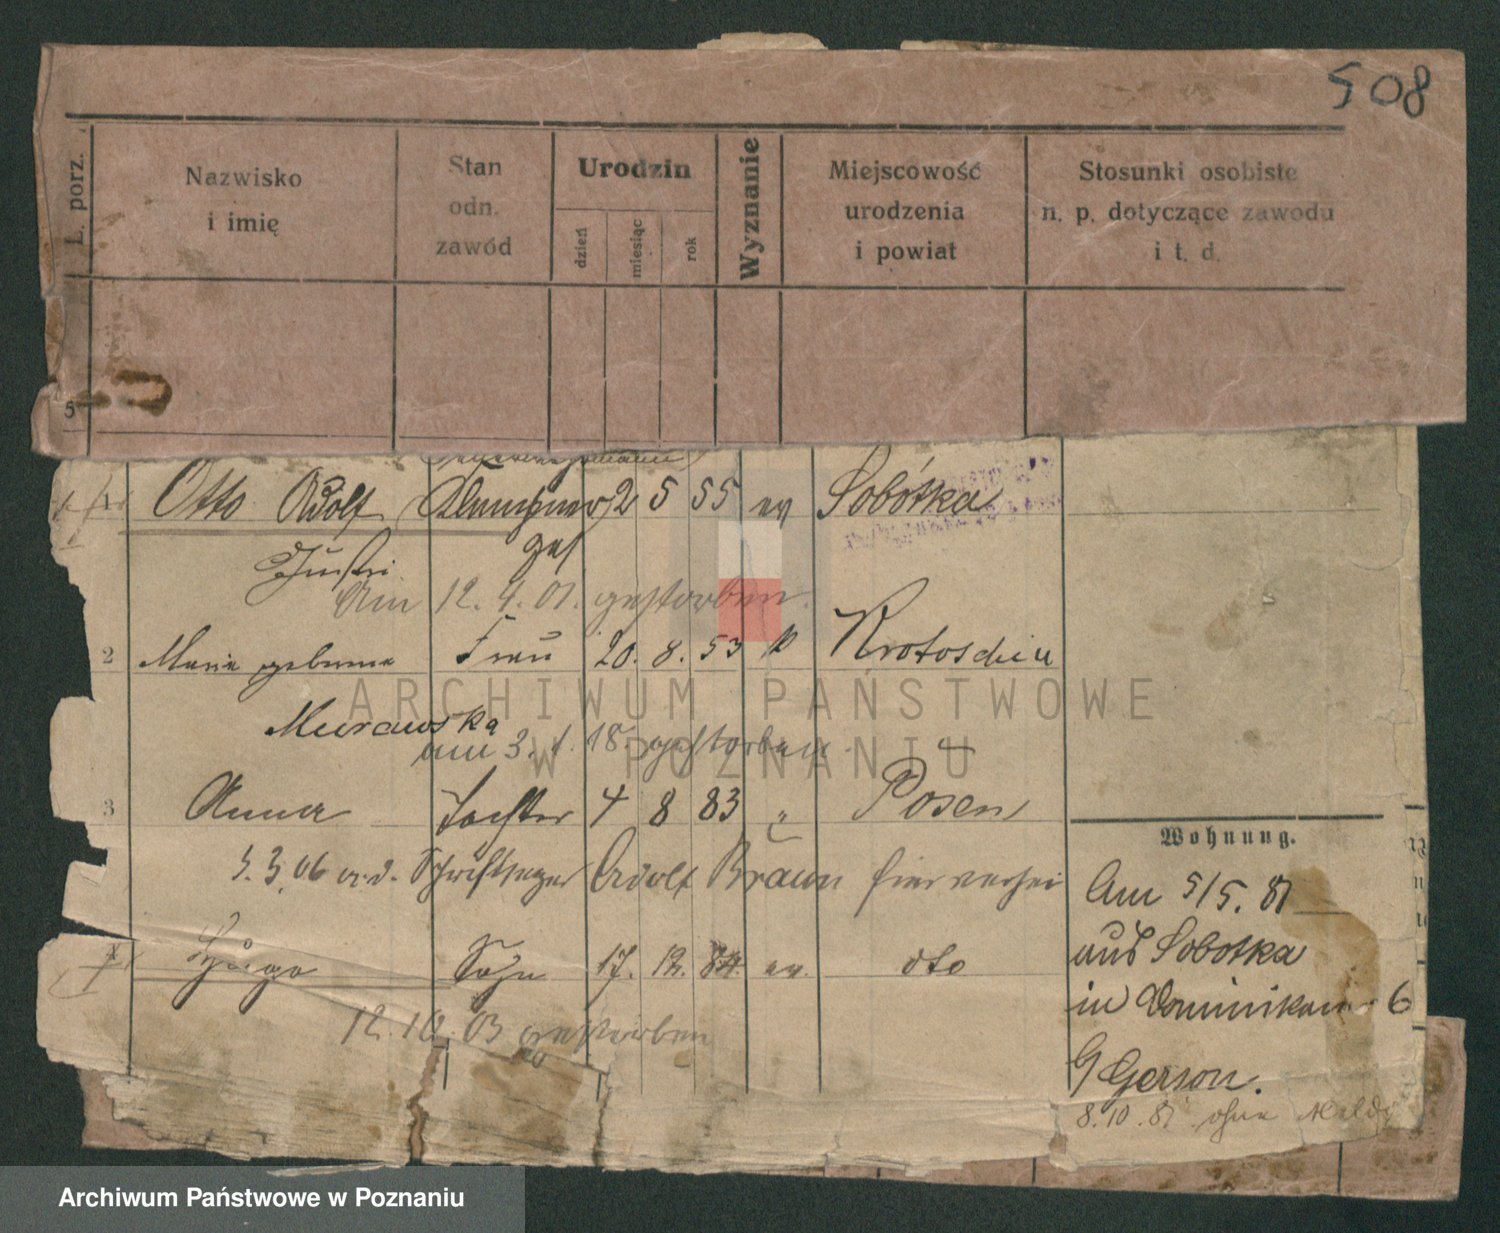 508
L. porz.
Nazwisko
i imię
Stan
odn.
zawód
Urodzin
dzień
miesiąc
rok
Wyznanie
Miejscowość
urodzenia
i powiat
Stosunki osobiste
n. p. dotyczące zawodu
i t. d.
5
1 Otto Adolf 2 5 55 ev Sobótka
Am 12. 4. 01. gestorben.
2 Marie geborene Frau 20. 8. 53 k Krotoschin
Murawska
am 3. 1. 18. gestorben.
3 Anna Tochter 4 8 83 " Posen
3. 3. 06 Schriftsetzer Adolf Braun hier
4 Hugo Sohn 17. 12. 84. ev. dto
12. 10. 03 gestorben
Wohnung.
Am 5/5. 81
aus Sobotka
in Dominikaner 6
G/ Gerson.
8. 10. 81 ohne Meldg
ARCHIWUM PAŃSTWOWE
W POZNANIU
Archiwum Państwowe w Poznaniu